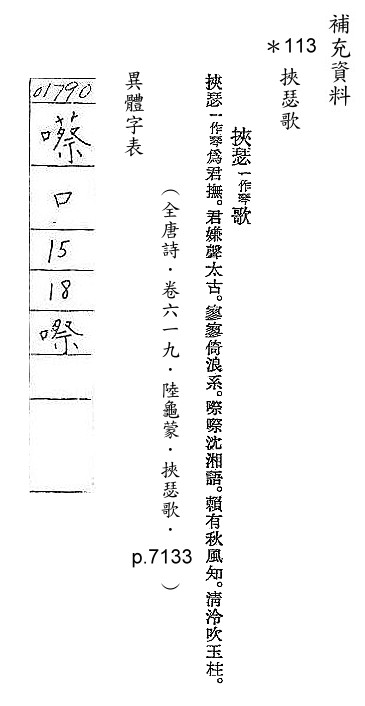 補充資料
＊113 挾瑟歌
挾瑟一作琴歌
挾瑟一作琴爲君撫。君嫌聲太古。寥寥倚浪系。㗫㗫沈湘語。賴有秋風知。淸泠吹玉柱。
（全唐詩．卷六一九．陸龜蒙．挾瑟歌．p.7133）
異體字表
01790
口
15
18
㗫